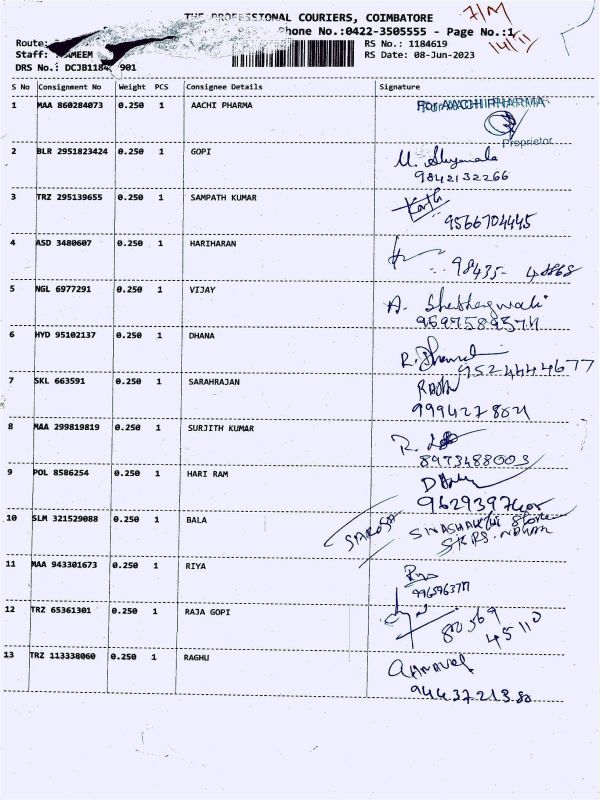 THE PROFESSIONAL COURIERS, COIMBATORE
7/M
Phone No.:0422-3505555 - Page No.:1
14/11
Route:
RS No.: 1184619
Staff: NAMEEM
RS Date: 08-Jun-2023
DRS No.: DCJB1184 901
S No Consignment No Weight PCS Consignee Details Signature
1 MAA 860284073 0.250 1 AACHI PHARMA For AACHI PHARMA
Proprietor
2 BLR 2951823424 0.250 1 GOPI
9842132266
3 TRZ 295139655 0.250 1 SAMPATH KUMAR
9566704445
4 ASD 3480607 0.250 1 HARIHARAN
98435- 48868
5 NGL 6977291 0.250 1 VIJAY
6 HYD 95102137 0.250 1 DHANA
9524444677
7 SKL 663591 0.250 1 SARAHRAJAN
8 MAA 299819819 0.250 1 SURJITH KUMAR
8973488003
9 POL 8586254 0.250 1 HARI RAM
10 SLM 321529088 0.250 1 BALA
11 MAA 943301673 0.250 1 RIYA
Riya
12 TRZ 65361301 0.250 1 RAJA GOPI
80569
45110
13 TRZ 113338060 0.250 1 RAGHU
9443721380